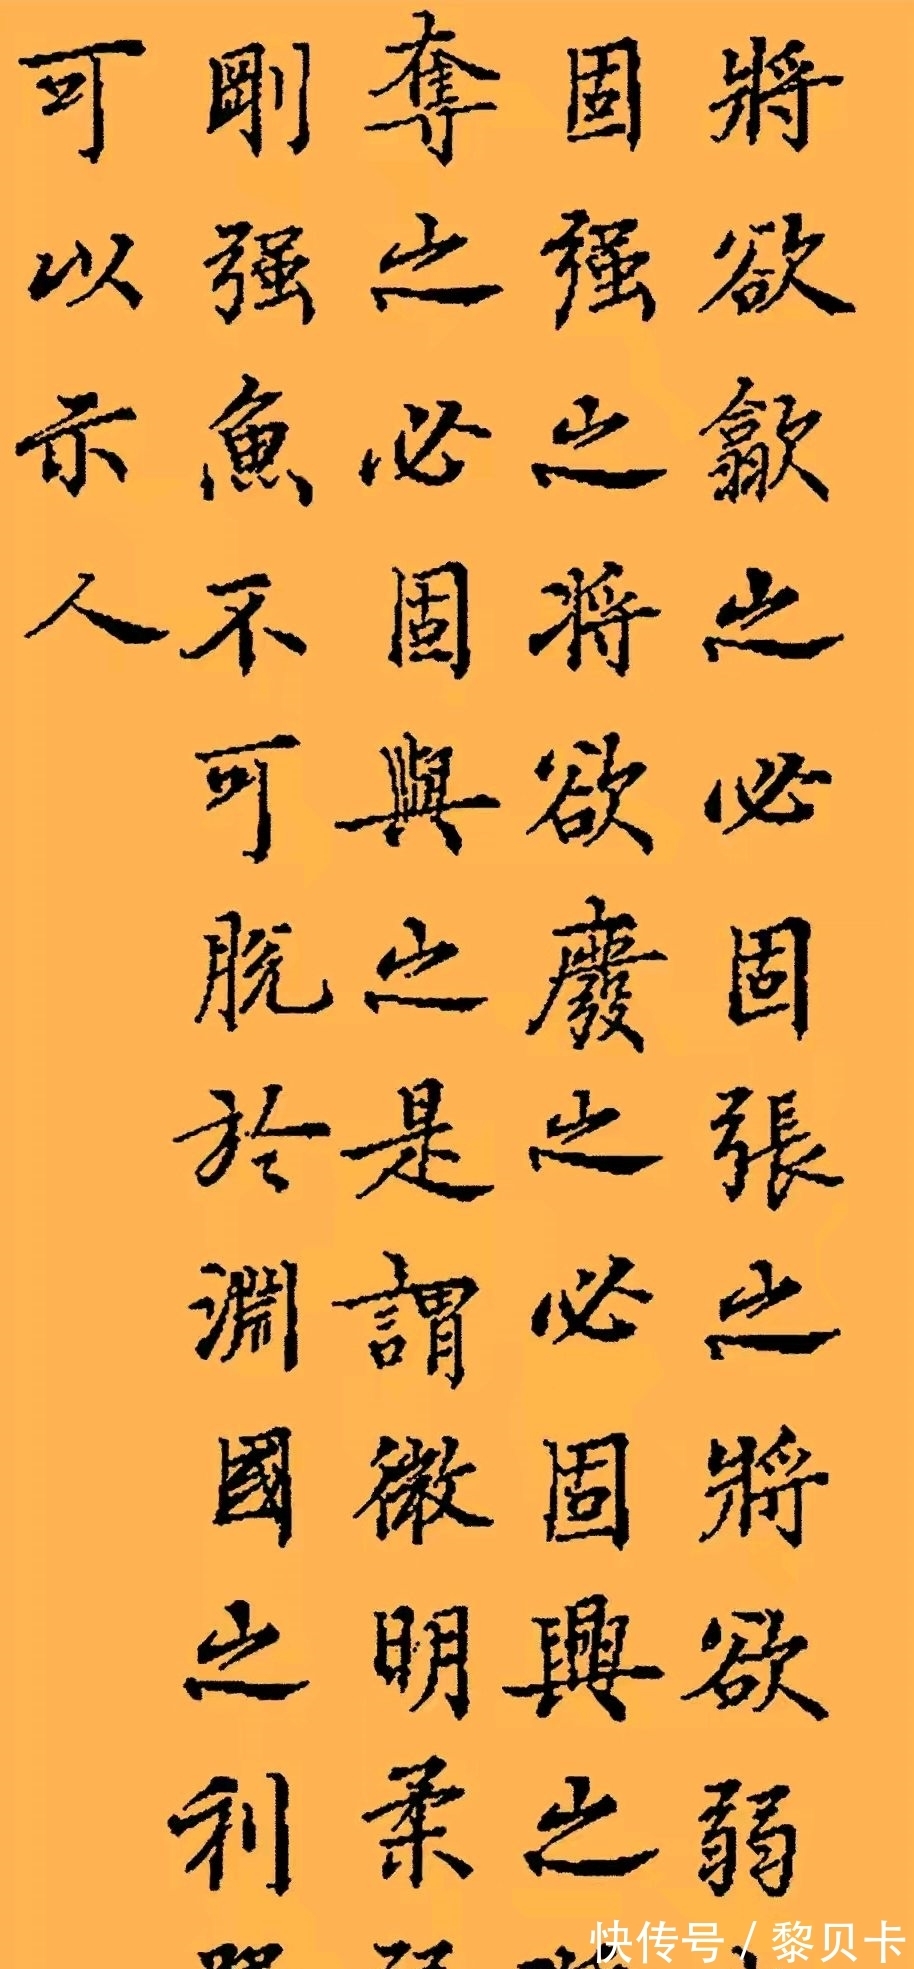 將欲歙之必固張之將欲弱
固强之将欲廢之必固興之
奪之必固與之是謂微明柔
剛强魚不可脫於淵國之利
可以示人
快传号 / 黎贝卡